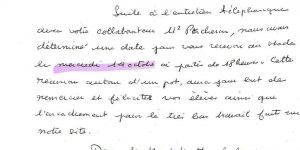 Suite à l'entretien téléphonique
avec votre collaborateur Mr Percheron, nous avons
déterminé une date pour vous recevoir au stade
le mercredi 14 octobre à partir de 18 heures. Cette
réunion autour d'un pot, aura pour but de
remercier et féliciter vos élèves ainsi que
l'encadrement pour le très bon travail fait sur
notre site.